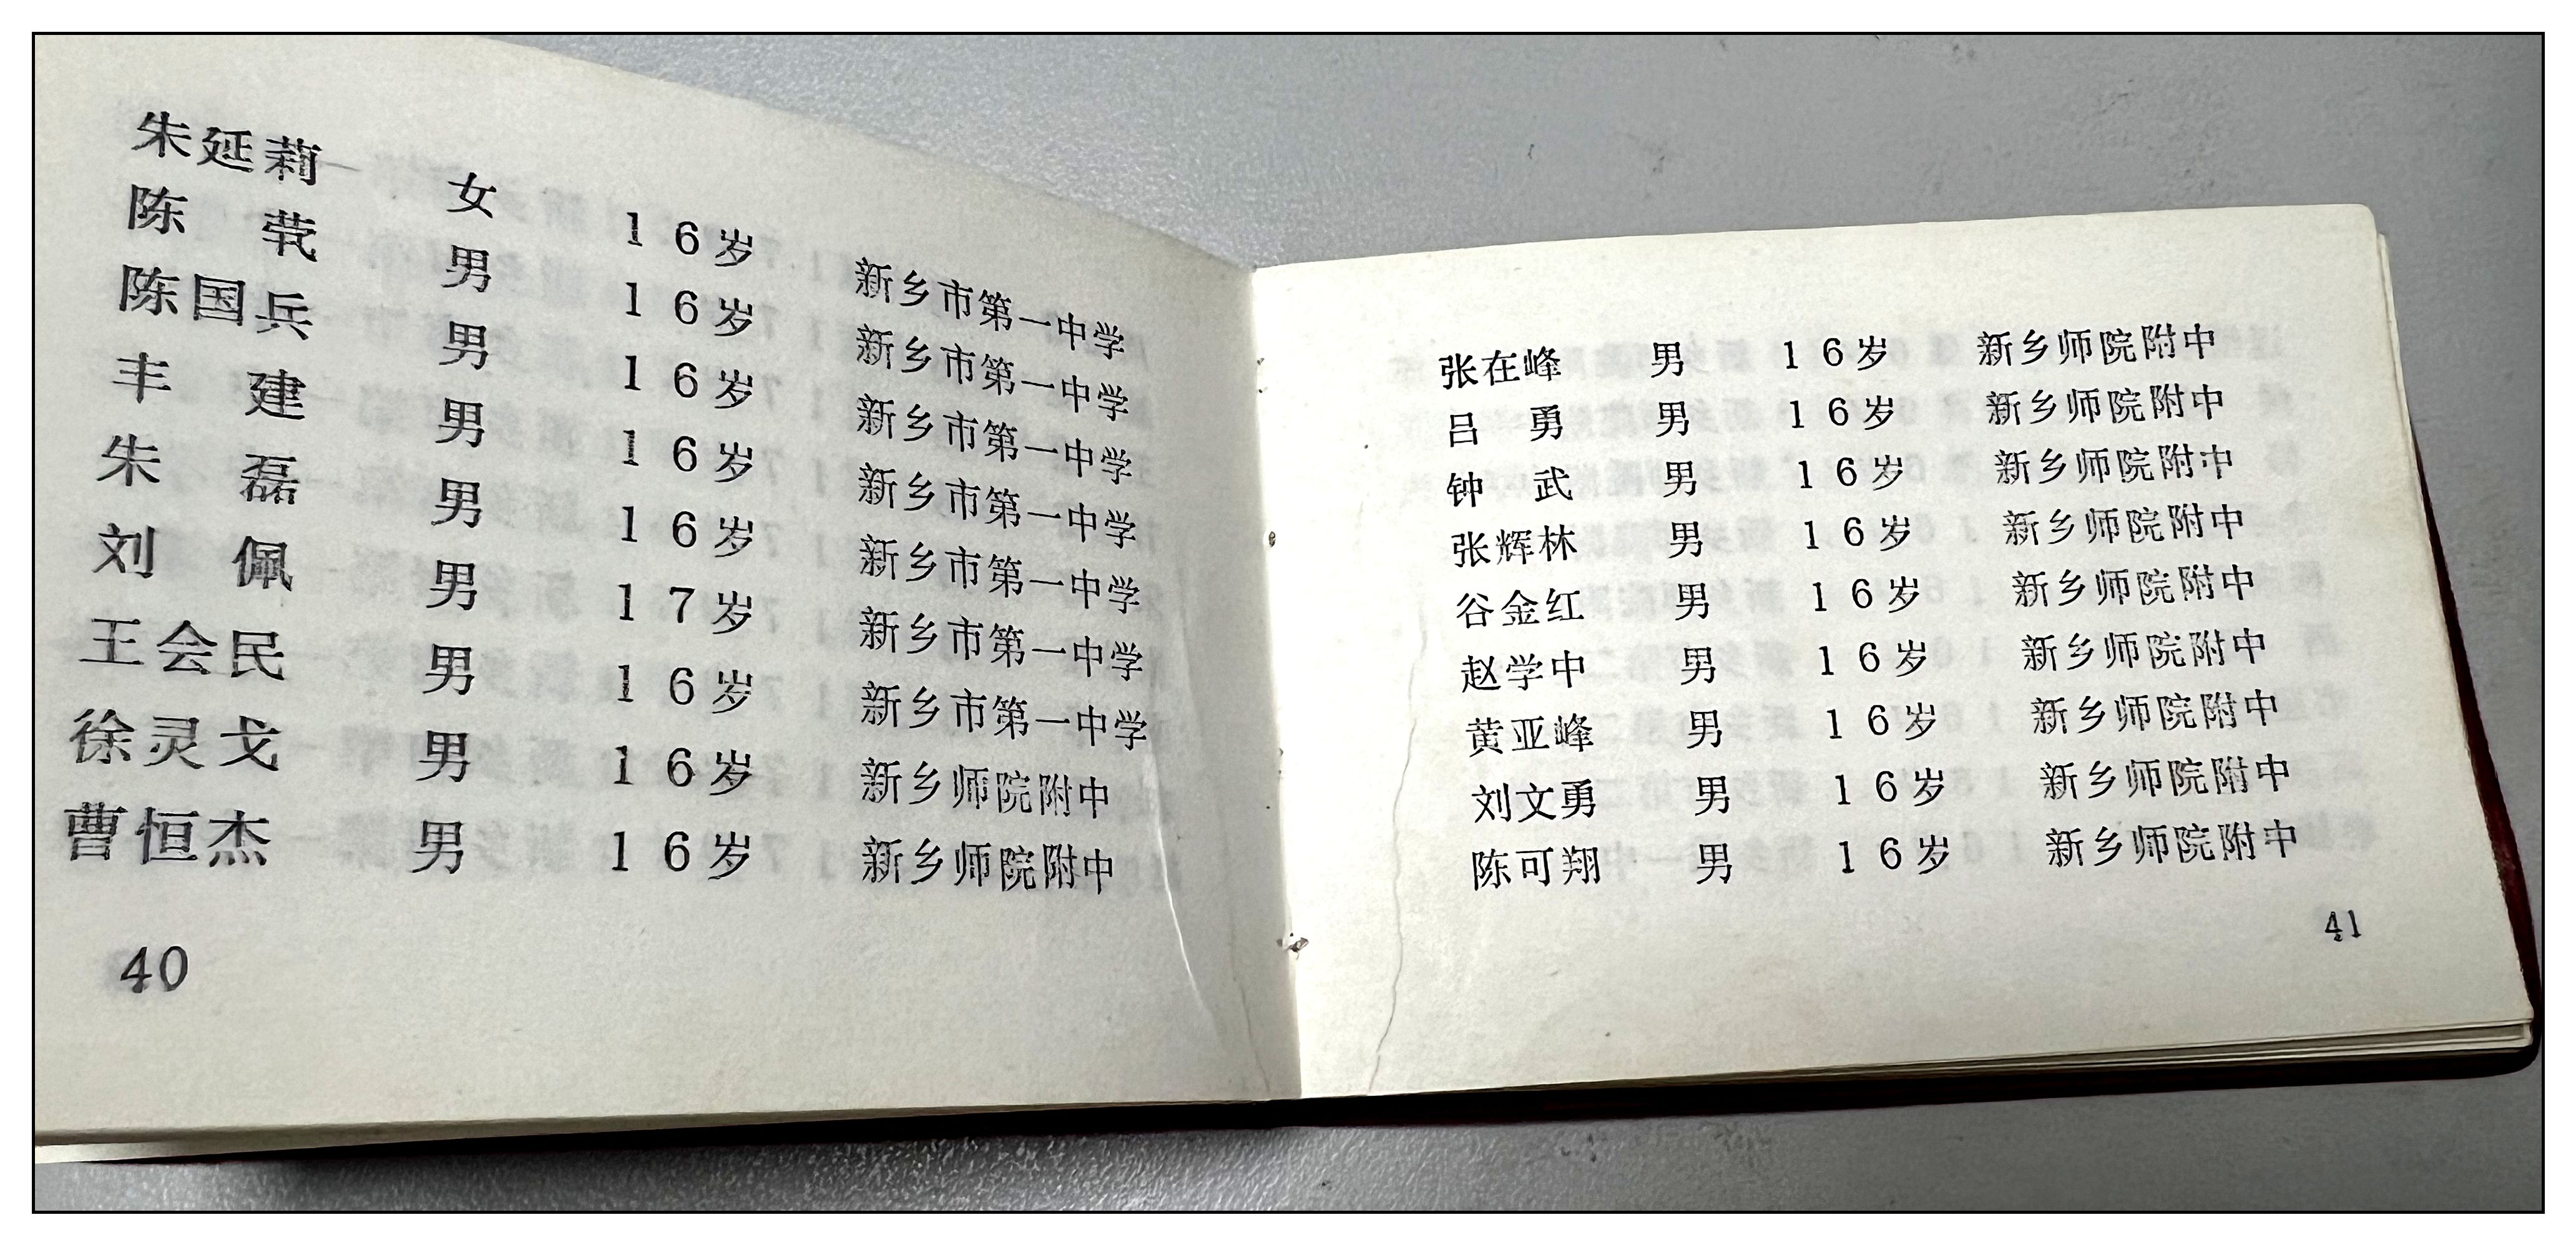 朱延莉 女 16岁 新乡市第一中学
陈 男 16岁 新乡市第一中学
陈国兵 男 16岁 新乡市第一中学
丰 建 男 16岁 新乡市第一中学
朱 磊 男 16岁 新乡市第一中学
刘 佩 男 17岁 新乡市第一中学
王会民 男 16岁 新乡市第一中学
徐灵戈 男 16岁 新乡师院附中
曹恒杰 男 16岁 新乡师院附中
40
张在峰 男 16岁 新乡师院附中
吕 勇 男 16岁 新乡师院附中
钟 武 男 16岁 新乡师院附中
张辉林 男 16岁 新乡师院附中
谷金红 男 16岁 新乡师院附中
赵学中 男 16岁 新乡师院附中
黄亚峰 男 16岁 新乡师院附中
刘文勇 男 16岁 新乡师院附中
陈可翔 男 16岁 新乡师院附中
41